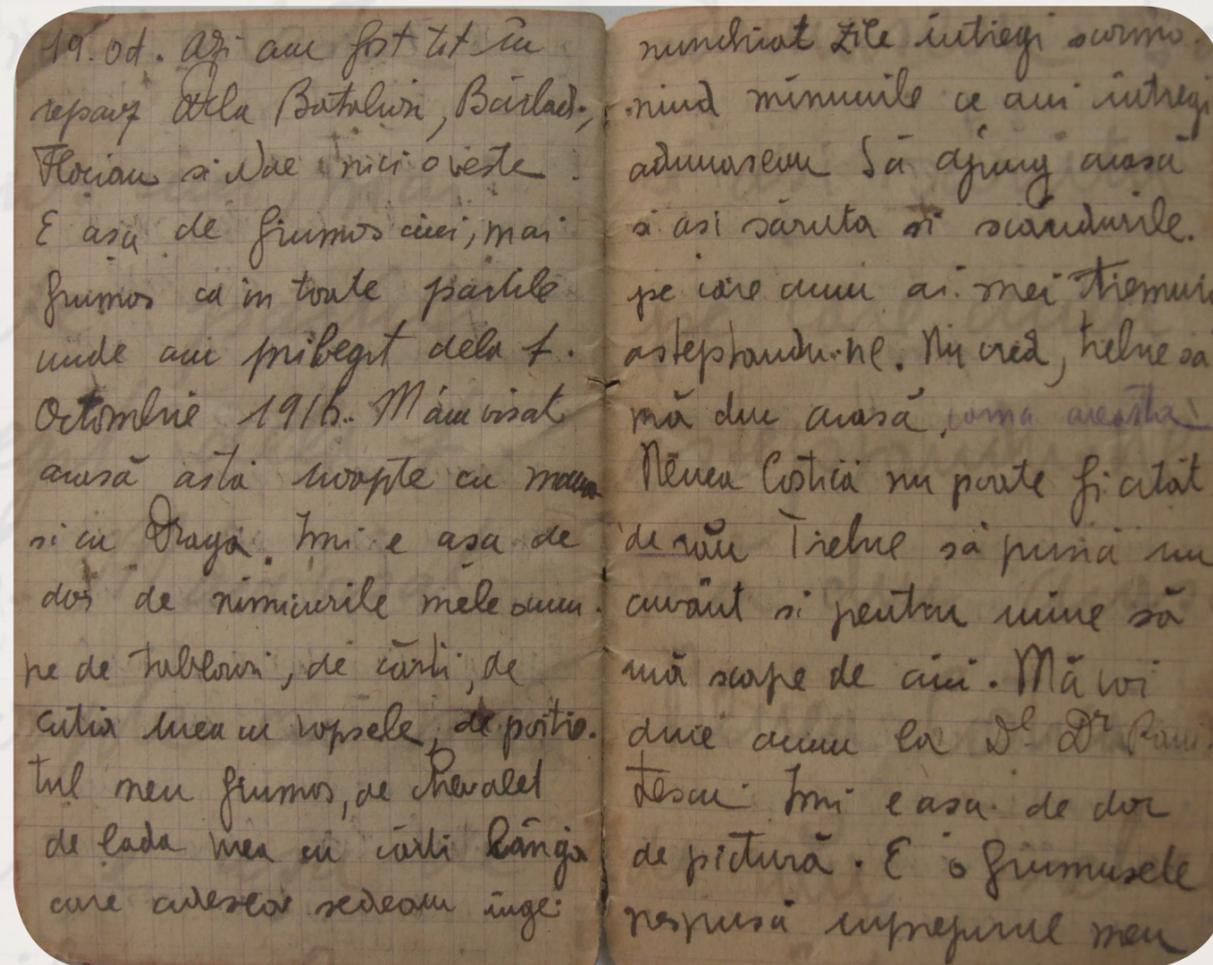 19. Oct. Azi am fost tot în
repaoz Dela Batalion, Bârlad.,
Florian si Nae nici o veste
E asa de frumos aici, mai
frumos ca în toate partile
unde am pribegit dela 1.
Octombrie 1916. M'am visat
acasă asta noapte cu mama
si cu Draga. Imi e asa de
dor de nimicurile mele scum-
pe de tablouri, de cărti, de
cutia mea cu vopsele, de portre-
tul meu frumos, de chevalet
de lada mea cu cărti lângă
care adesea sedeam inge-
nunchiat zile intregi scormo-
nind minunile ce ani intregi
adunasem Să ajung acasă
si asi săruta si scândurile.
pe care acum ai mei tremură
asteptandu-ne. Nu cred, trebue sa
mă duc acasă, iarna aceasta
Nenea Costică nu poate fi atât
de rău Trebue să pună un
cuvânt si pentru mine să
mă scape de aici. Mă voi
duce acum la Dl Dr
Imi e asa de dor
de pictură. E o frumusete
nespusă imprejurul meu